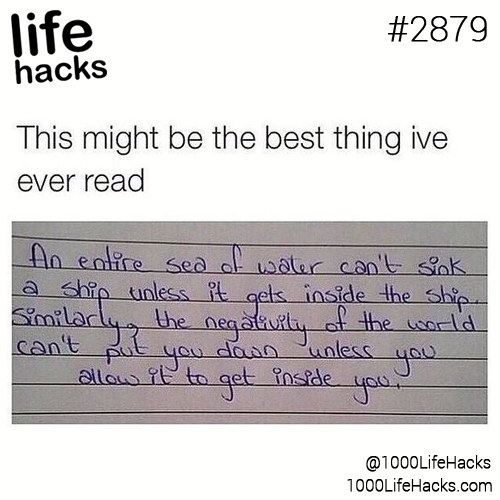 life
hacks
#2879
This might be the best thing ive
ever read
An entire sea of water can't sink
a ship unless it gets inside the ship.
Similarly, the negativity of the world
can't put you down unless you
allow it to get inside you.
@1000LifeHacks
1000LifeHacks.com